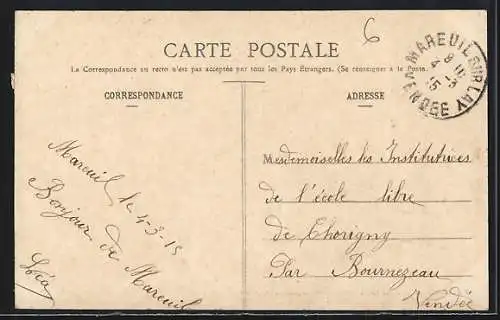 6
CARTE POSTALE
La Correspondance au recto n'est pas acceptée par tous les Pays Étrangers. (Se renseigner à la Poste.
MAREUIL SUR LAY
VENDÉE
CORRESPONDANCE
ADRESSE
Mareuil le 4-3-15
Bonjour de Mareuil
Léa
Mesdemoiselles les Institutrices
de l'école libre
de Thorigny
Par Bournezeau
Vendée